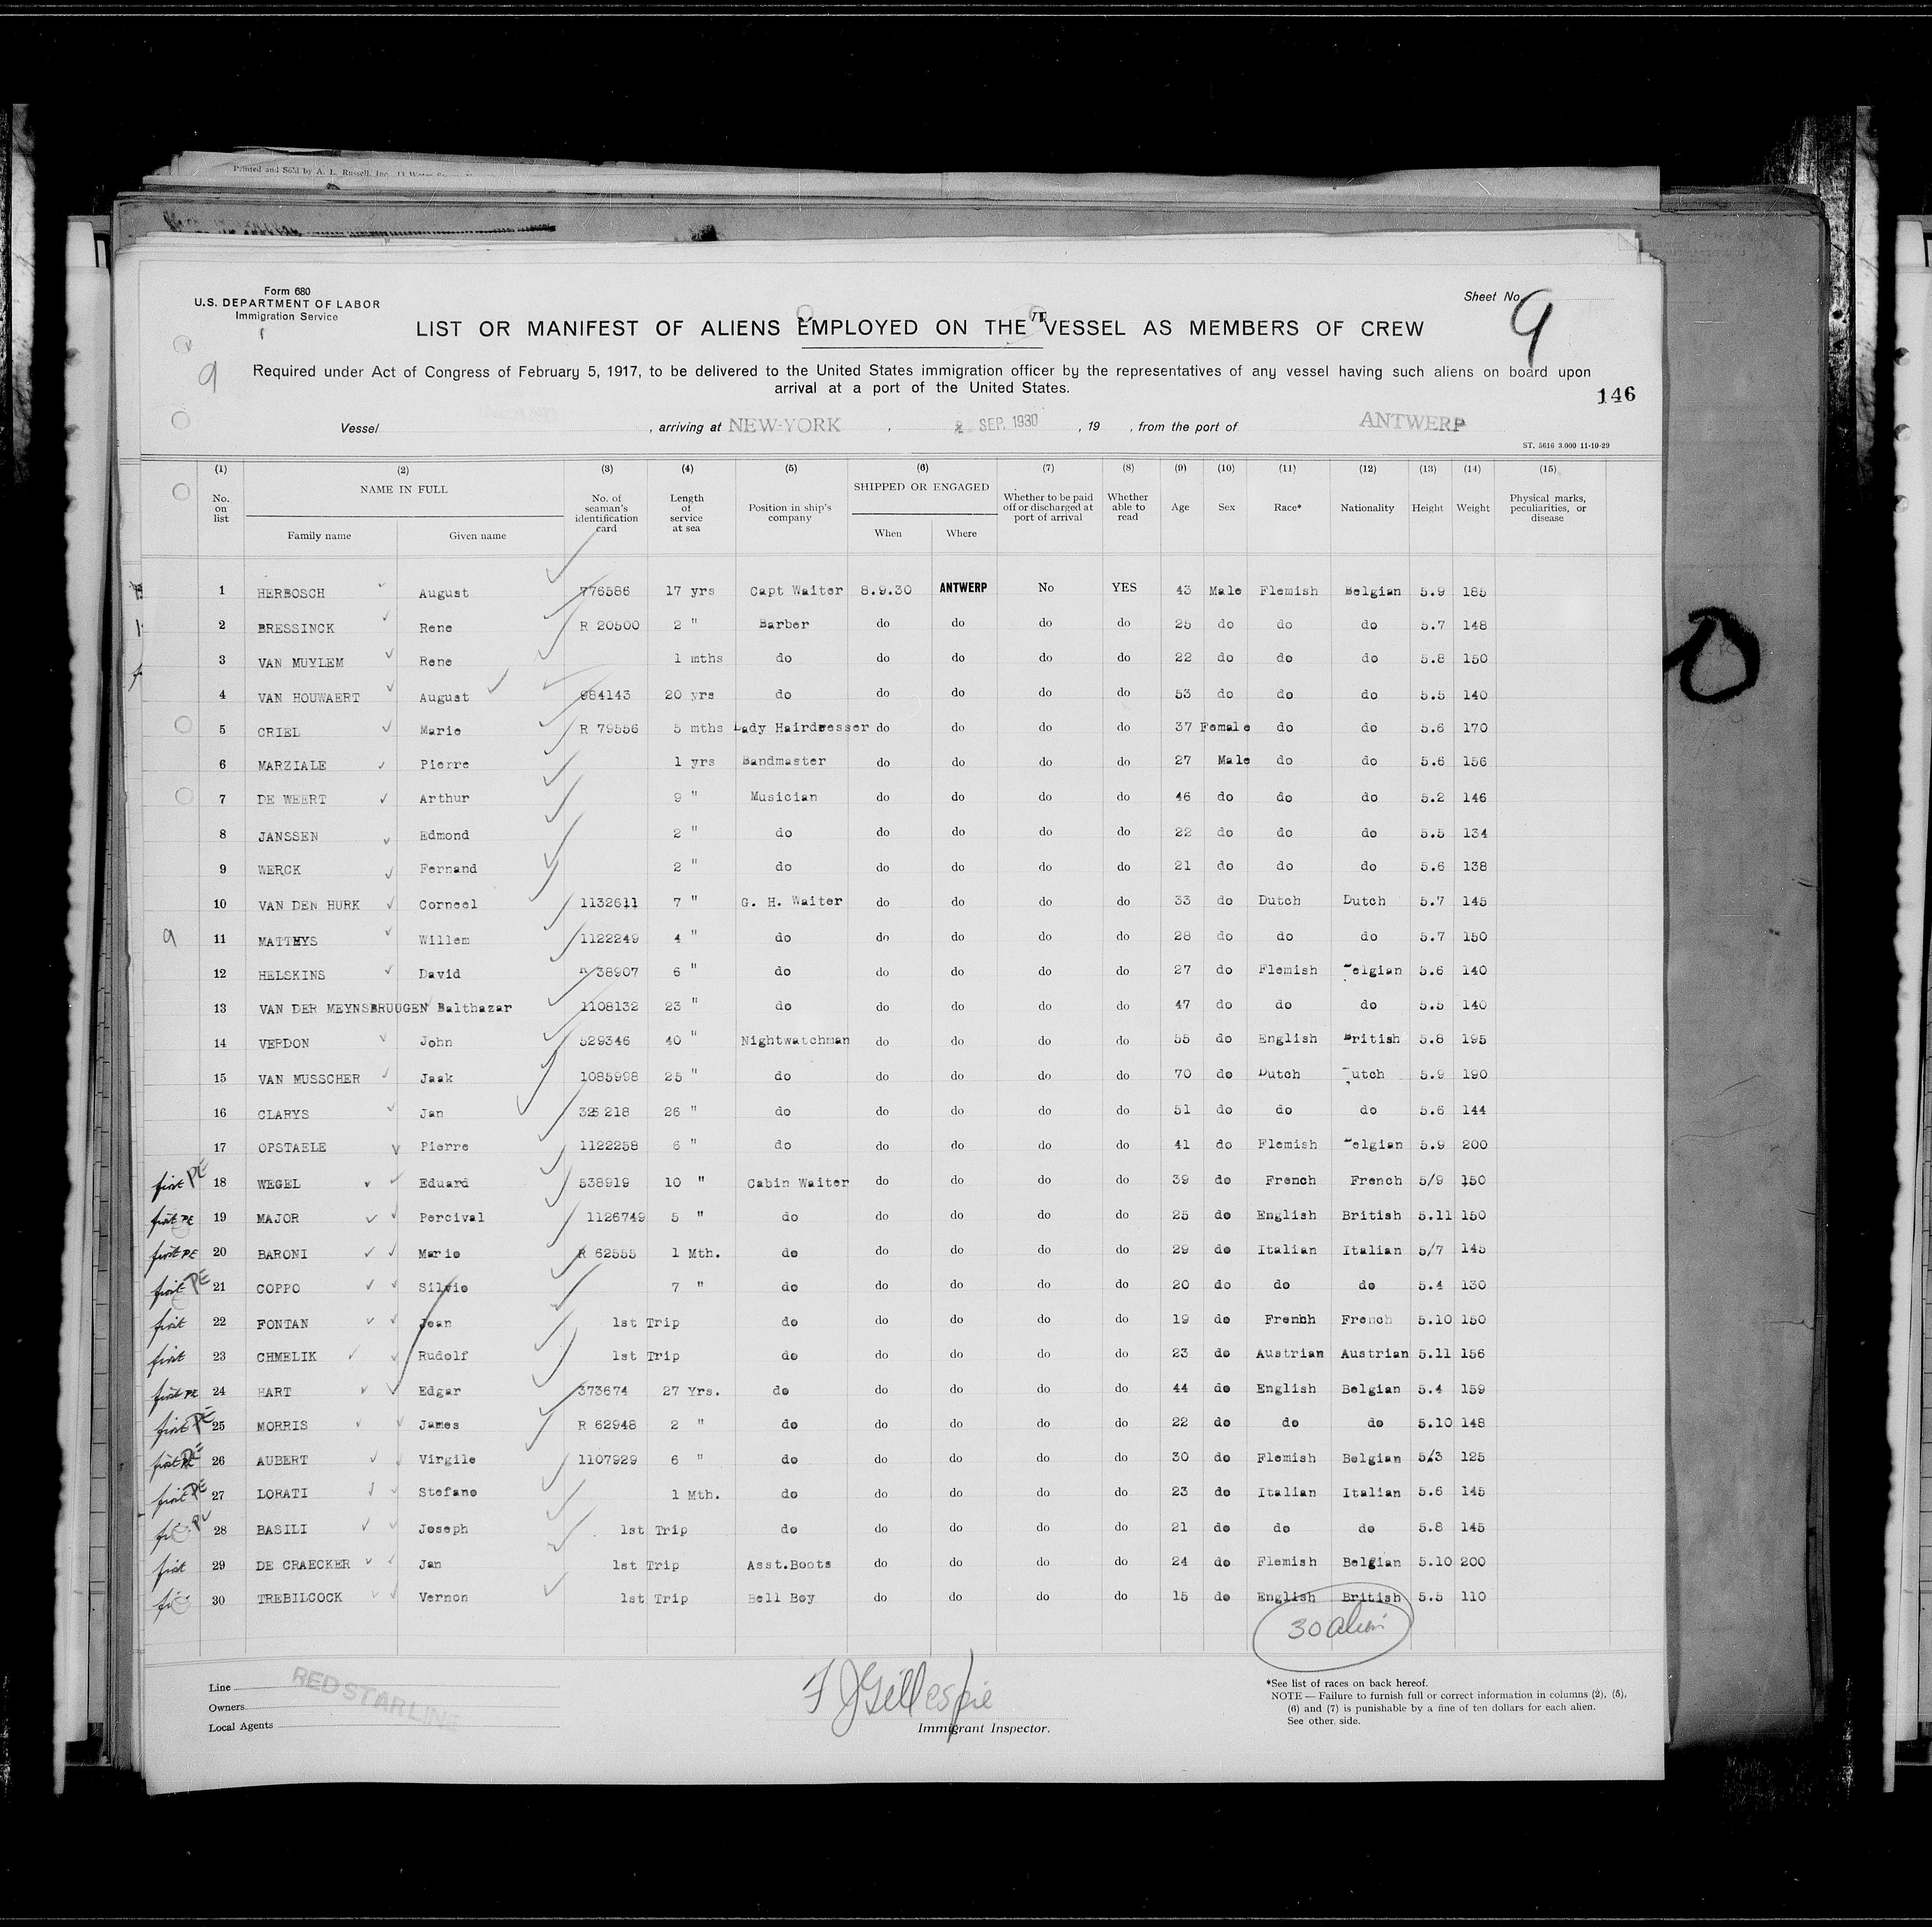 Printed and Sold by A. L. Russell, Inc.
Form 680
U.S. DEPARTMENT OF LABOR
Immigration Service
Sheet No. 9
LIST OR MANIFEST OF ALIENS EMPLOYED ON THE VESSEL AS MEMBERS OF CREW
9
Required under Act of Congress of February 5, 1917, to be delivered to the United States immigration officer by the representatives of any vessel having such aliens on board upon
arrival at a port of the United States.
146
Vessel , arriving at NEW-YORK , SEP. 1930 , 19 , from the port of ANTWERP
ST. 5616 3.000 11-10-29
(1) (2) (3) (4) (5) (6) (7) (8) (9) (10) (11) (12) (13) (14) (15)
No. on list NAME IN FULL Family name Given name No. of seaman's identification card Length of service at sea Position in ship's company SHIPPED OR ENGAGED When Where Whether to be paid off or discharged at port of arrival Whether able to read Age Sex Race* Nationality Height Weight Physical marks, peculiarities, or disease
1 HERBOSCH August 776586 17 yrs Capt Waiter 8.9.30 ANTWERP No YES 43 Male Flemish Belgian 5.9 185
2 BRESSINCK Rene R 20500 2 " Barber do do do do 25 do do do 5.7 148
3 VAN MUYLEM Rene 1 mths do do do do do 22 do do do 5.8 150
4 VAN HOUWAERT August 984143 20 yrs do do do do do 53 do do do 5.5 140
5 CRIEL Marie R 79556 5 mths Lady Hairdresser do do do do 37 Female do do 5.6 170
6 MARZIALE Pierre 1 yrs Bandmaster do do do do 27 Male do do 5.6 156
7 DE WEERT Arthur 9 " Musician do do do do 46 do do do 5.2 146
8 JANSSEN Edmond 2 " do do do do do 22 do do do 5.5 134
9 WERCK Fernand 2 " do do do do do 21 do do do 5.6 138
10 VAN DEN HURK Corneel 1132611 7 " G. H. Waiter do do do do 33 do Dutch Dutch 5.7 145
9 11 MATTHYS Willem 1122249 4 " do do do do do 28 do do do 5.7 150
12 HELSKINS David R 38907 6 " do do do do do 27 do Flemish Belgian 5.6 140
13 VAN DER MEYNSBRUUGEN Balthazar 1108132 23 " do do do do do 47 do do do 5.5 140
14 VERDON John 529346 40 " Nightwatchman do do do do 55 do English British 5.8 195
15 VAN MUSSCHER Jaak 1085998 25 " do do do do do 70 do Dutch Dutch 5.9 190
16 CLARYS Jan 326 218 26 " do do do do do 51 do do do 5.6 144
17 OPSTAELE Pierre 1122258 6 " do do do do do 41 do Flemish Belgian 5.9 200
first PE 18 WEGEL Eduard 538919 10 " Cabin Waiter do do do do 39 do French French 5/9 150
first PE 19 MAJOR Percival 1126749 5 " do do do do do 25 do English British 5.11 150
first PE 20 BARONI Mario R 62555 1 Mth. do do do do do 29 do Italian Italian 5/7 145
first PE 21 COPPO Silvio 7 " do do do do do 20 do do do 5.4 130
first 22 FONTAN Jean 1st Trip do do do do do 19 do French French 5.10 150
first 23 CHMELIK Rudolf 1st Trip do do do do do 23 do Austrian Austrian 5.11 156
first PE 24 HART Edgar 373674 27 Yrs. do do do do do 44 do English Belgian 5.4 159
first PE 25 MORRIS James R 62948 2 " do do do do do 22 do do do 5.10 148
first PE 26 AUBERT Virgile 1107929 6 " do do do do do 30 do Flemish Belgian 5/3 125
first PE 27 LORATI Stefano 1 Mth. do do do do do 23 do Italian Italian 5.6 145
28 BASILI Joseph 1st Trip do do do do do 21 do do do 5.8 145
first 29 DE CRAECKER Jan 1st Trip Asst.Boots do do do do 24 do Flemish Belgian 5.10 200
30 TREBILCOCK Vernon 1st Trip Bell Boy do do do do 15 do English British 5.5 110
30 alien
Line
Owners
Local Agents
RED STAR LINE
F J Gillespie
Immigrant Inspector.
*See list of races on back hereof.
NOTE — Failure to furnish full or correct information in columns (2), (5),
(6) and (7) is punishable by a fine of ten dollars for each alien.
See other side.